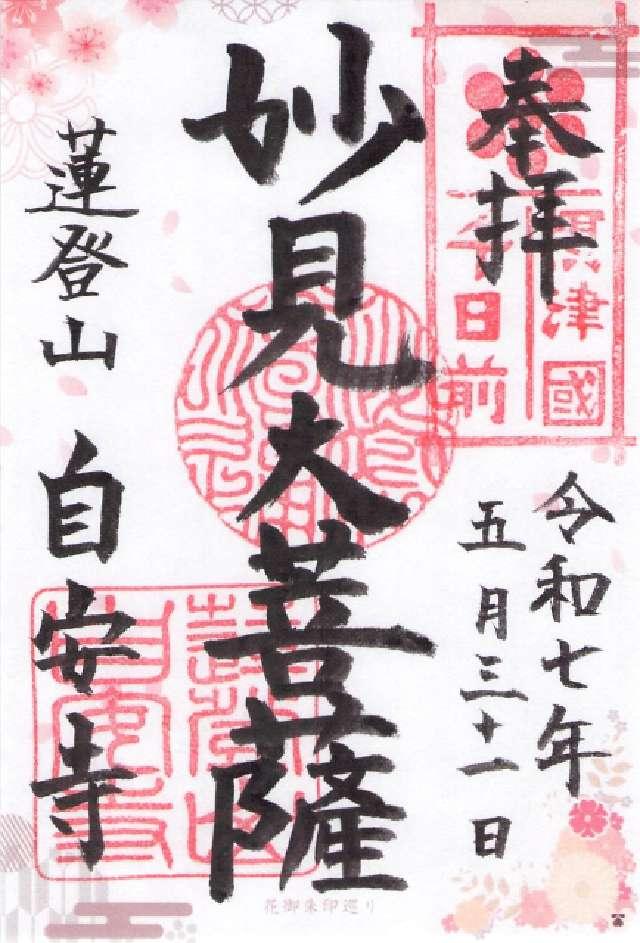 奉拝
津國
日前
令和七年
五月三十一日
妙見大菩薩
蓮登山
自安寺
蓮登山
自安寺
花御朱印巡り